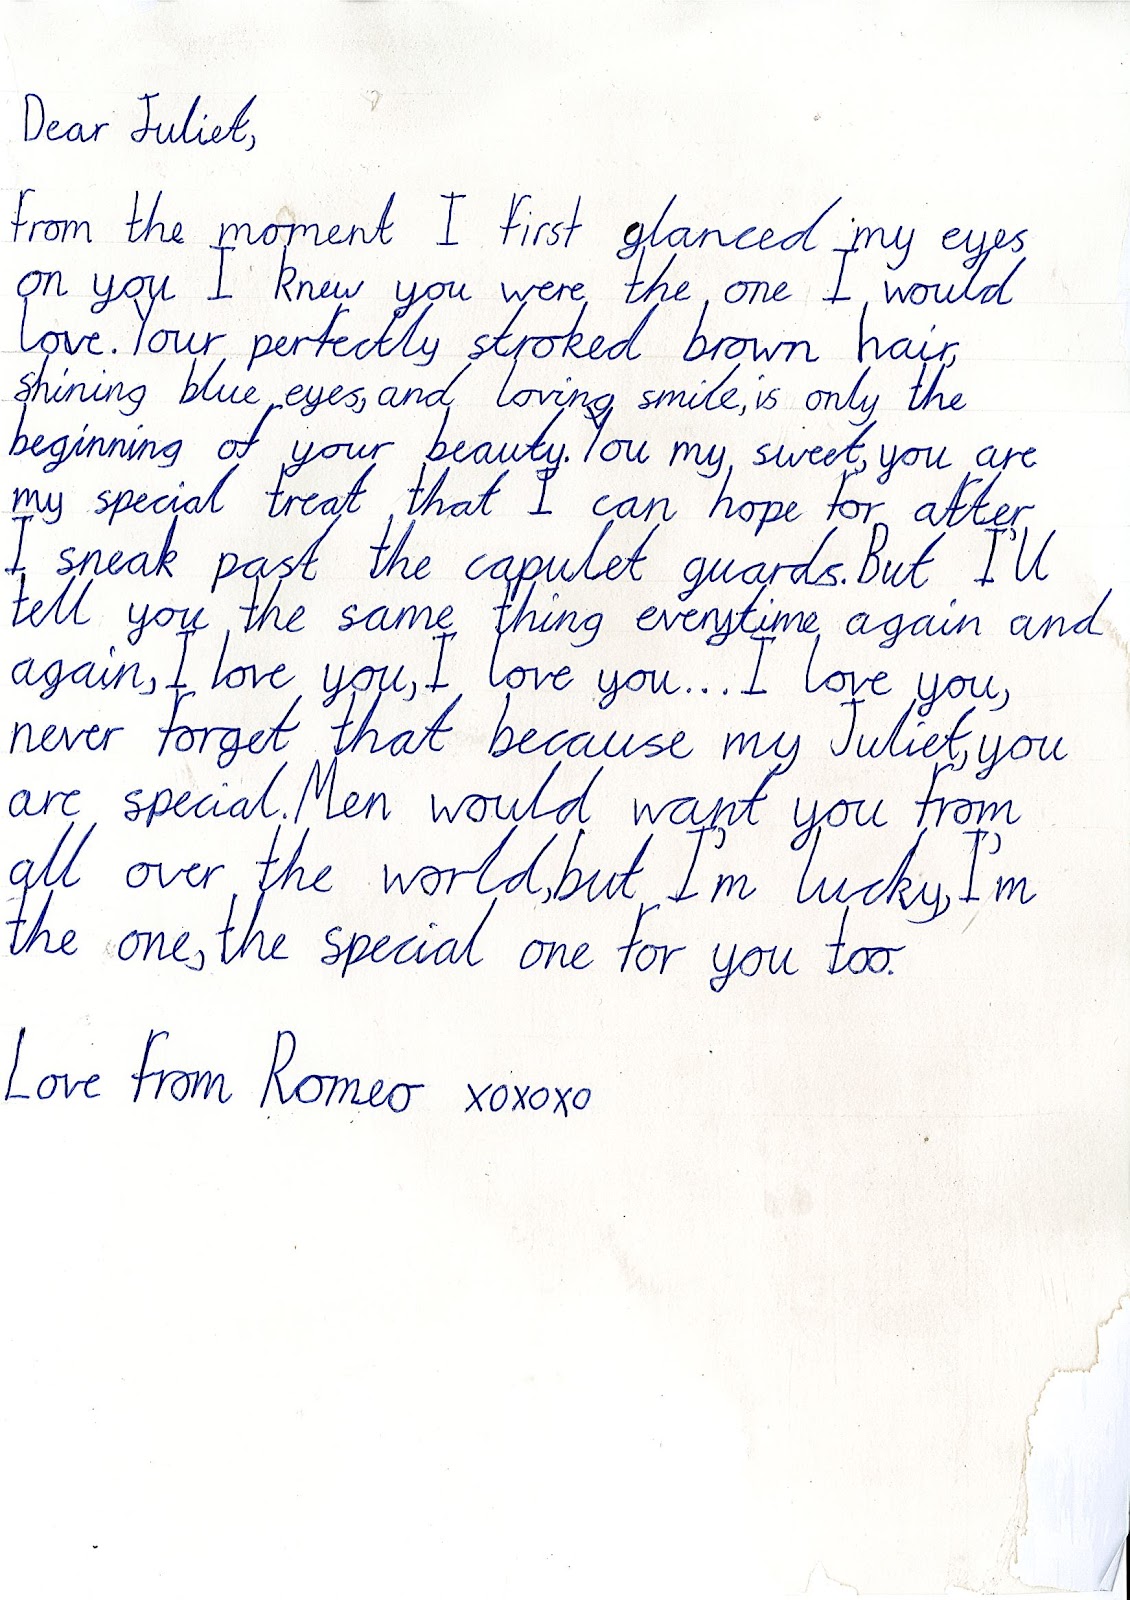 Dear Juliet,
From the moment I first glanced my eyes
on you I knew you were the one I would
love. Your perfectly stroked brown hair,
shining blue eyes, and loving smile, is only the
beginning of your beauty. You my sweet, you are
my special treat that I can hope for after
I sneak past the capulet guards. But I'll
tell you the same thing everytime again and
again, I love you, I love you... I love you,
never forget that because my Juliet, you
are special. Men would want you from
all over the world, but I'm lucky, I'm
the one, the special one for you too.
Love from Romeo xoxoxo